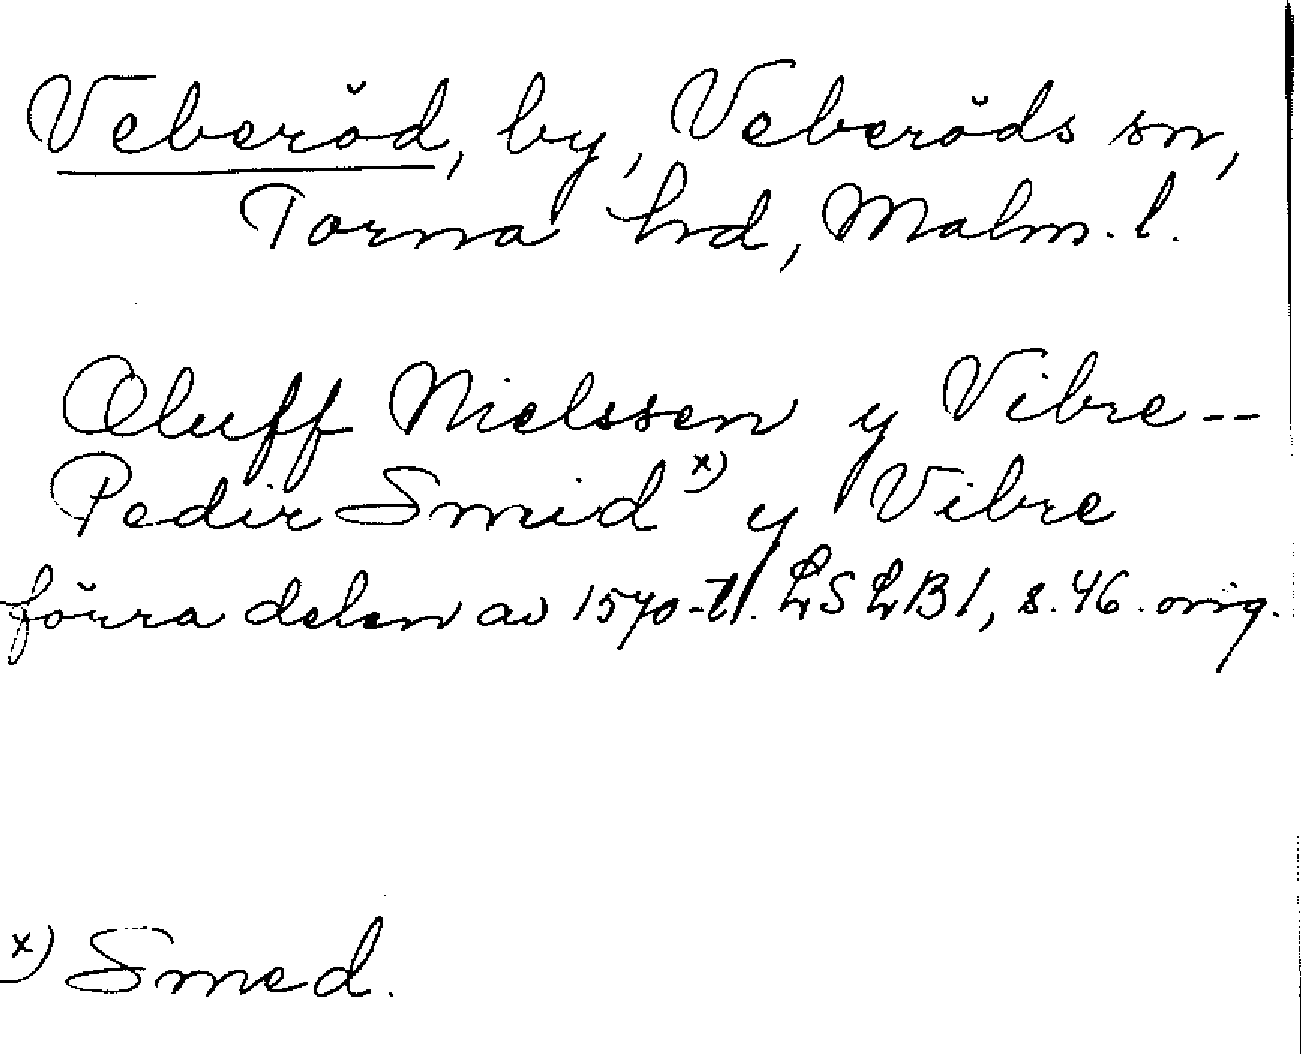 Veberöd, by, Veberöds sn,
Torna hd, Malm. l.
Oluff Nielssen y Vibre--
Pedir Smid x) y Vibre
förra delen av 1570-tl. LSLB1, s. 46. orig.
x) Smed.